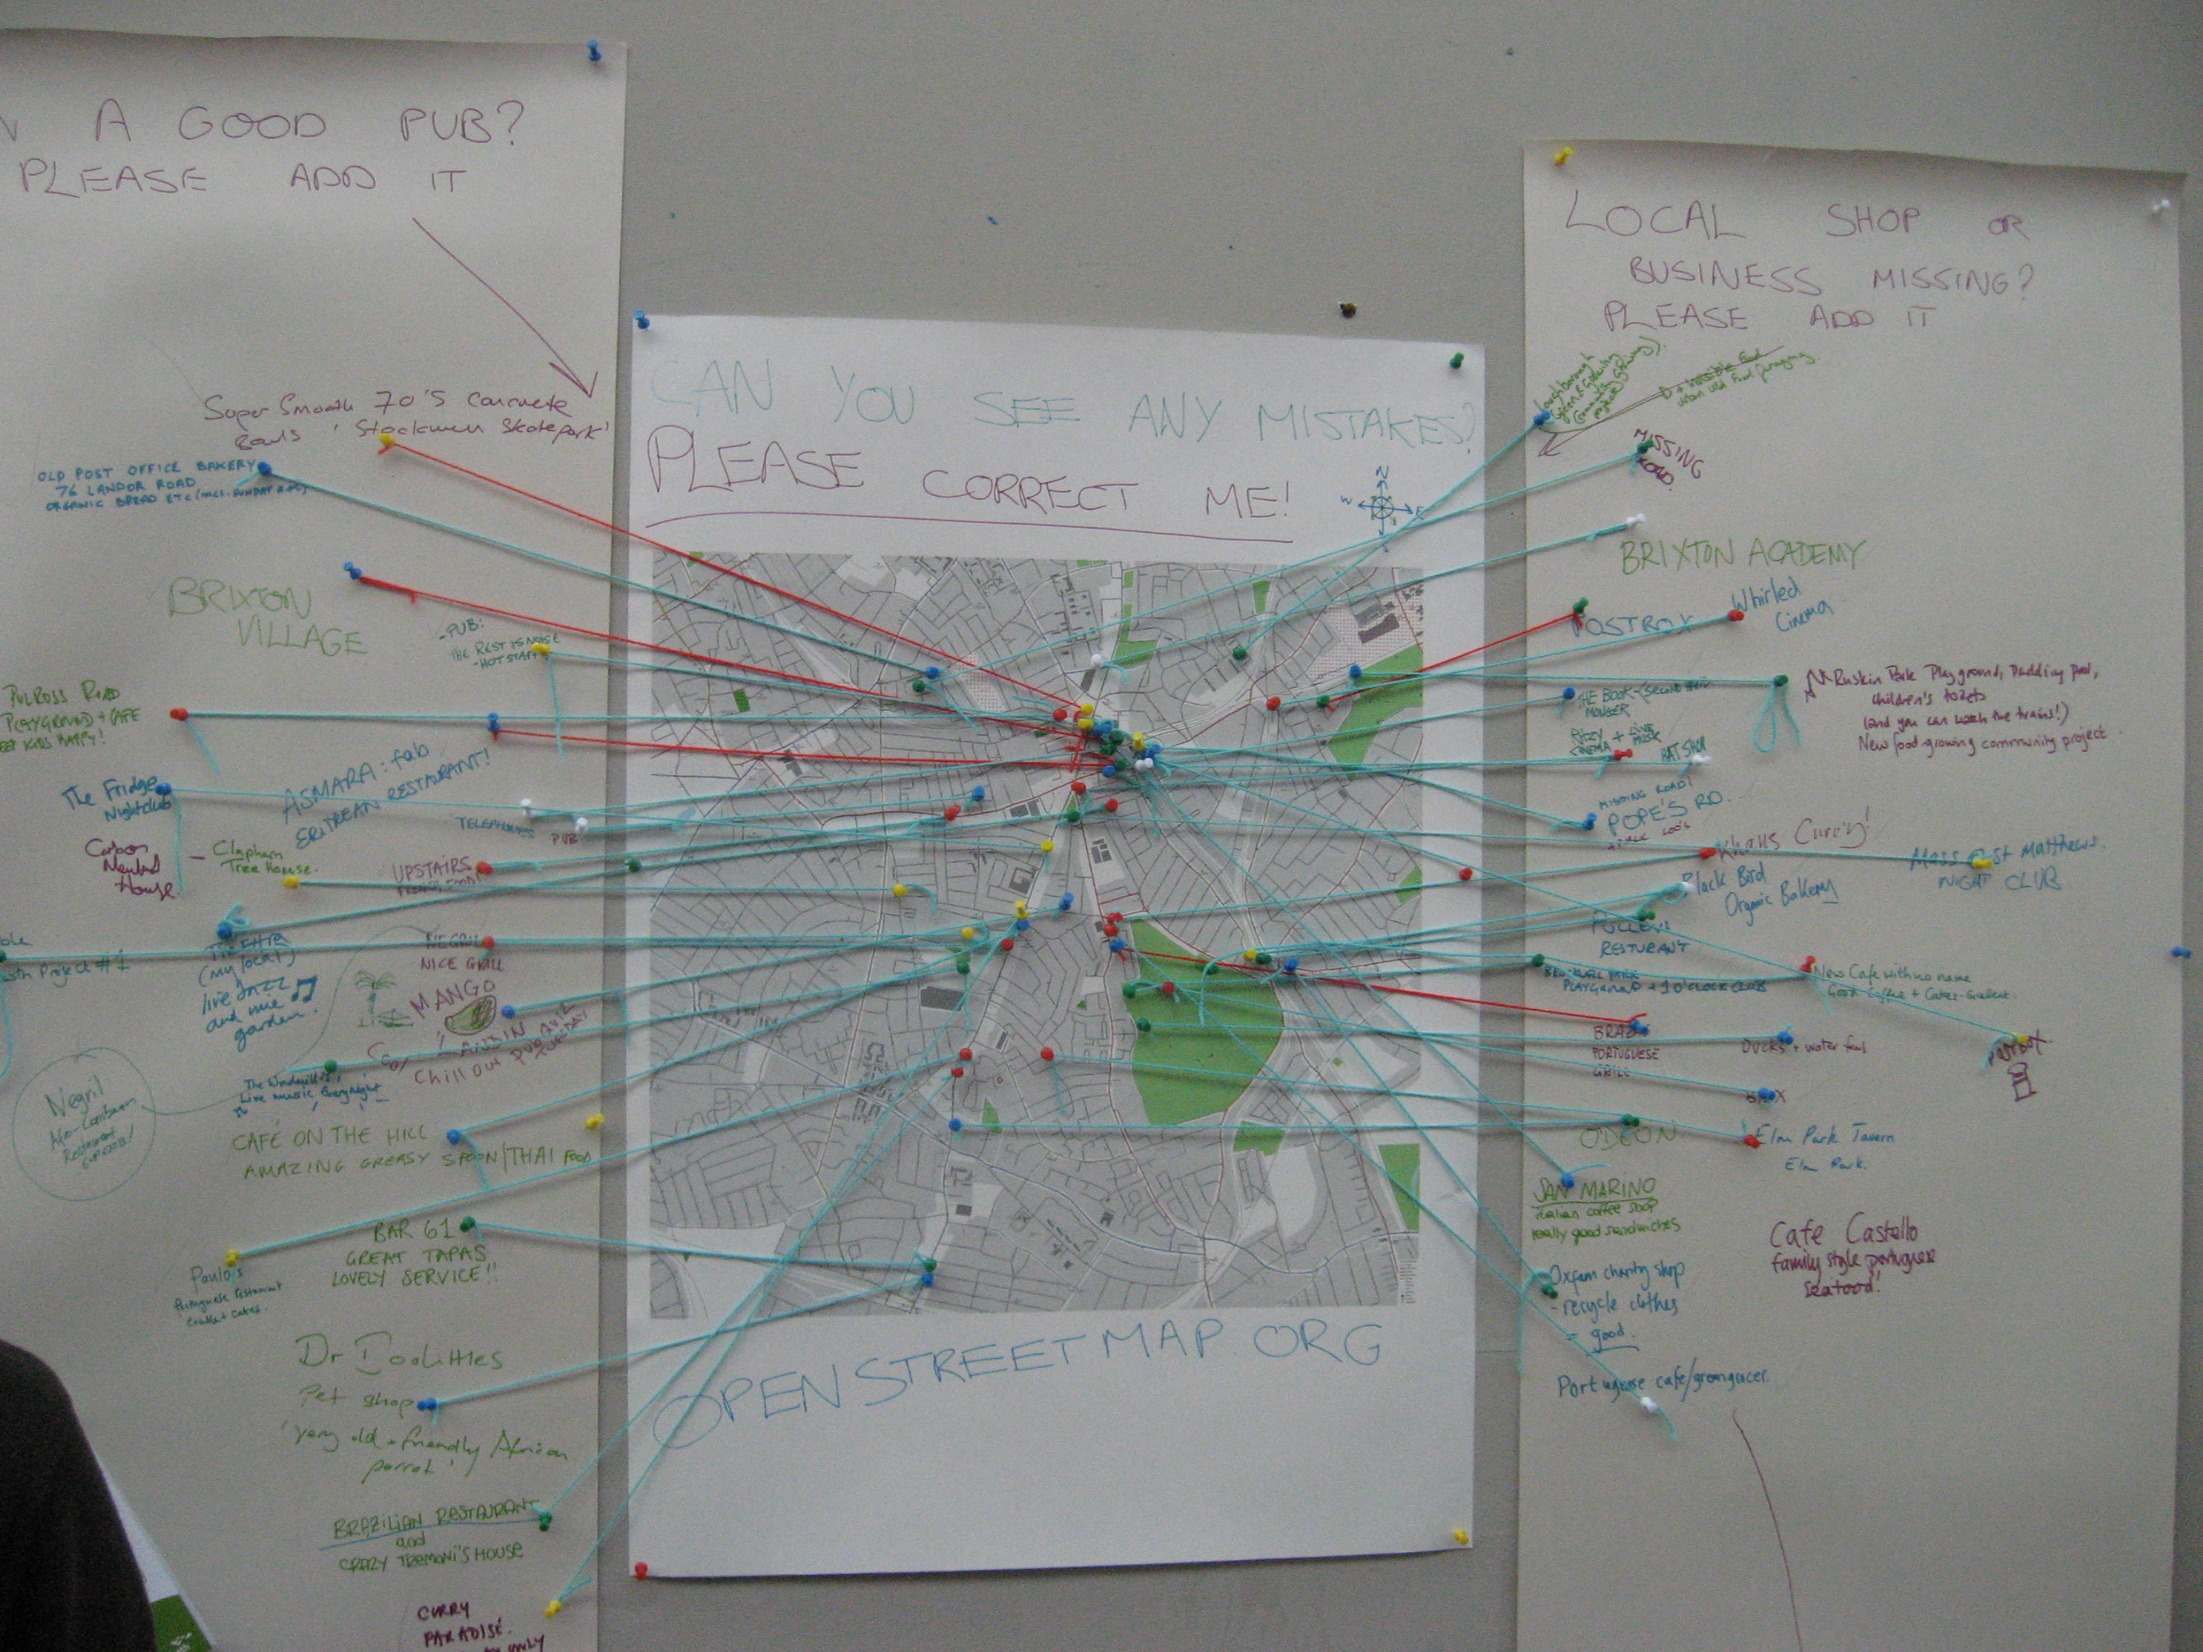 A GOOD PUB?
PLEASE ADD IT
Super Smooth 70's Concrete
'Stockwell Skatepark'
OLD POST OFFICE BAKERY
76 LANDOR ROAD
ORGANIC BREAD ETC
BRIXTON
VILLAGE
- PUB:
THE REST IS NOISE
- HOT STAFF
PULROSS ROAD
PLAYGROUND + CAFE
KIDS HAPPY!
ASMARA: fab
ERITREAN RESTAURANT!
The Fridge
Nightclub
PUB
Carbon
Neutral
House
Clapham
Tree House.
UPSTAIRS
Project #1
(my local)
live JAZZ
and nice
garden.
NEGRIL
NICE GRILL
MANGO
LANDIN
Chill out PUB
TUESDAY
The Windmill
Live music Everynight
Negril
Afro-Carribean
Restaurant
CAFÉ ON THE HILL
AMAZING GREASY SPOON/THAI FOOD
BAR 61
GREAT TAPAS
LOVELY SERVICE!!
Paulo's
Portuguese restaurant
cakes.
Dr Doolittles
Pet shop
'very old + friendly African
parrot'
BRAZILIAN RESTAURANT
and
CRAZY TREMONI'S HOUSE
CURRY
PARADISE.
ONLY
CAN YOU SEE ANY MISTAKES?
PLEASE CORRECT ME!
N
W
E
OPENSTREETMAP.ORG
LOCAL SHOP OR
BUSINESS MISSING?
PLEASE ADD IT
Loughborough
MISSING
ROAD.
BRIXTON ACADEMY
POSTBOX
Whirled
Cinema
Ruskin Park Playground, Paddling pool,
children's toilets
(and you can watch the trains!)
New food-growing community project.
THE BOOK-
MONGER
RITZY
CINEMA + LIVE
MUSIC
HAT SHOP
MISSING ROAD!
POPE'S RD.
Khans Curry!
Mass @ St Matthews.
NIGHT CLUB
Black Bird
Organic Bakery
RESTURANT
PLAYGROUND + 1 O'CLOCK CLUB
New Cafe with no name
Good Coffee + Cakes. Excellent.
PORTUGUESE
GRILL
Ducks + water fowl
POSTBOX
ODEON
Elm Park Tavern
Elm Park.
SAN MARINO
italian coffee shop
really good sandwiches
Cafe Castello
family style portuguese
seafood!
Oxfam charity shop
- recycle clothes
= good.
Portuguese cafe/greengrocer.